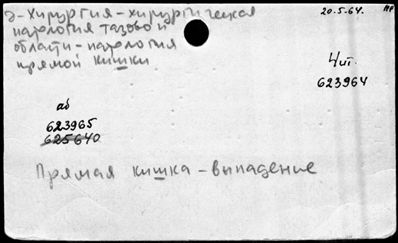 2-Хирургия-хирургическая
патология тазовой
области-патология
прямой кишки.
20.5.64.
Чит.
623964
аб
623965
625640
Прямая кишка-выпадение